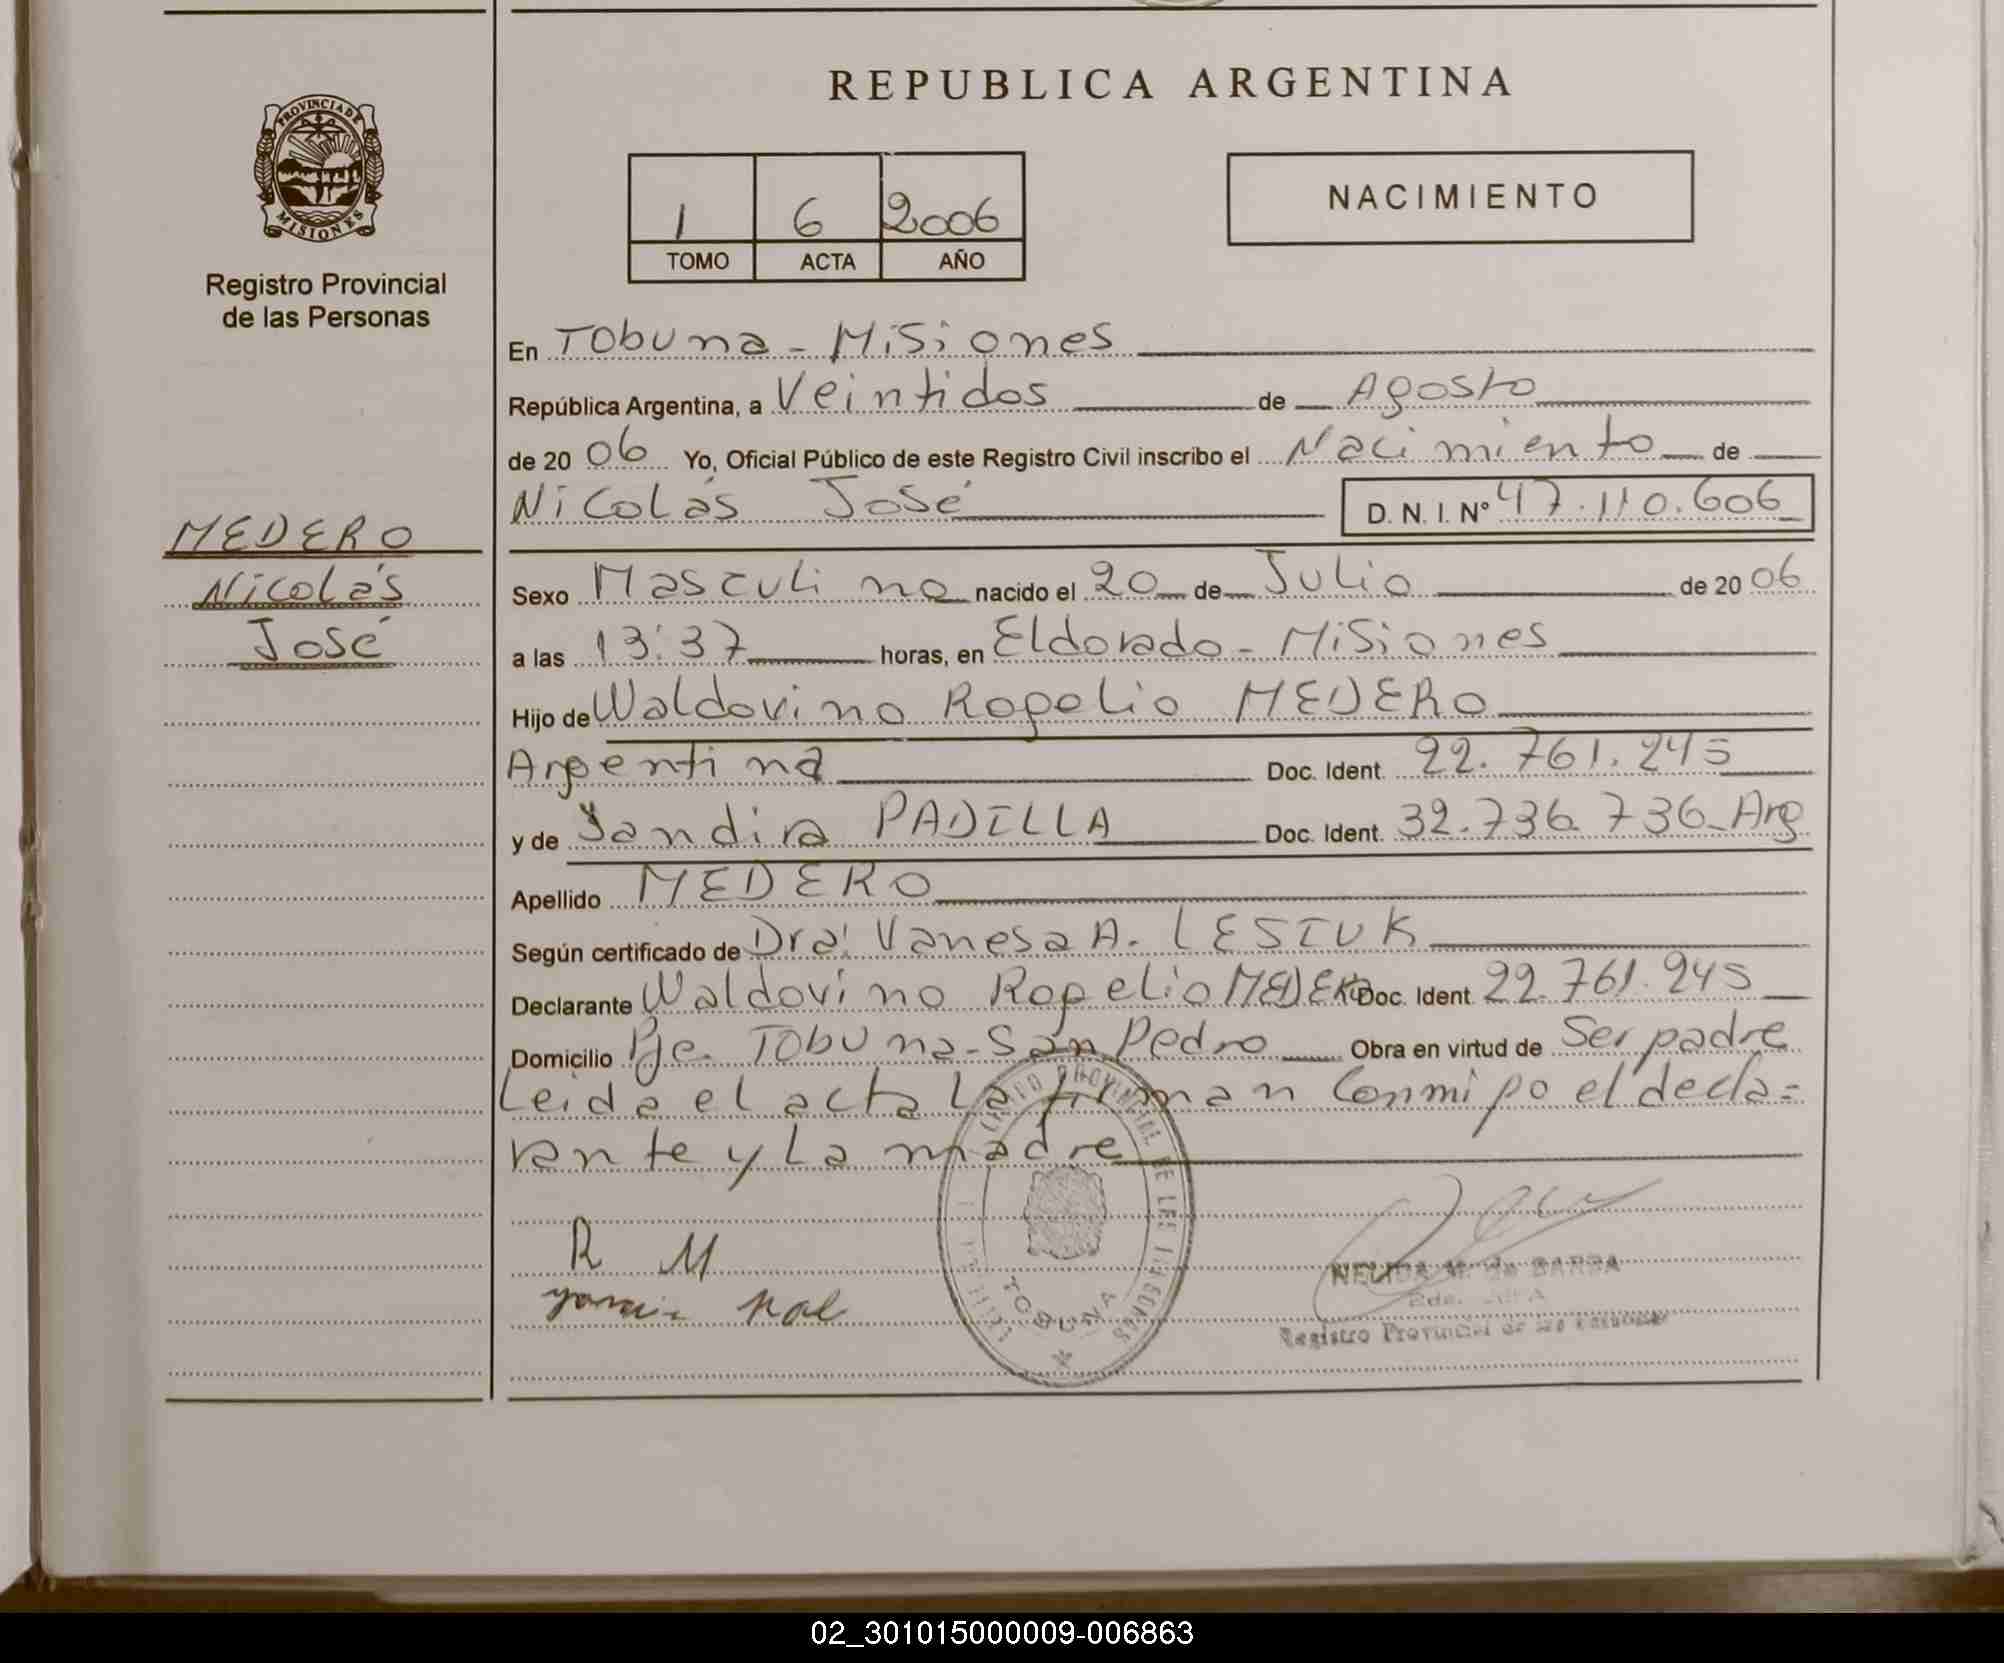 REPUBLICA ARGENTINA
PROVINCIA DE
MISIONES
Registro Provincial
de las Personas
1 6 2006
TOMO ACTA AÑO
NACIMIENTO
En Tobuna - Misiones
República Argentina, a Veintidos de Agosto
de 20 06 Yo, Oficial Público de este Registro Civil inscribo el Nacimiento de
Nicolás José D. N. I. Nº 47.110.606
MEDERO
Nicolás
José
Sexo Masculino nacido el 20 de Julio de 20 06
a las 13:37 horas, en Eldorado - Misiones
Hijo de Waldovino Rogelio MEDERO
Argentina Doc. Ident. 22.761.245
y de Sandira PADILLA Doc. Ident. 32.736.736 Arg
Apellido MEDERO
Según certificado de Dra. Vanesa A. LESIUK
Declarante Waldovino Rogelio MEDERO Doc. Ident. 22.761.245
Domicilio Pje. Tobuna - San Pedro Obra en virtud de Ser padre
Leida el acta la firman Conmigo el decla=
rante y La madre
R M
TOBUNA
NELIDA M. de BARBA
Registro Provincial de las Personas
02_301015000009-006863